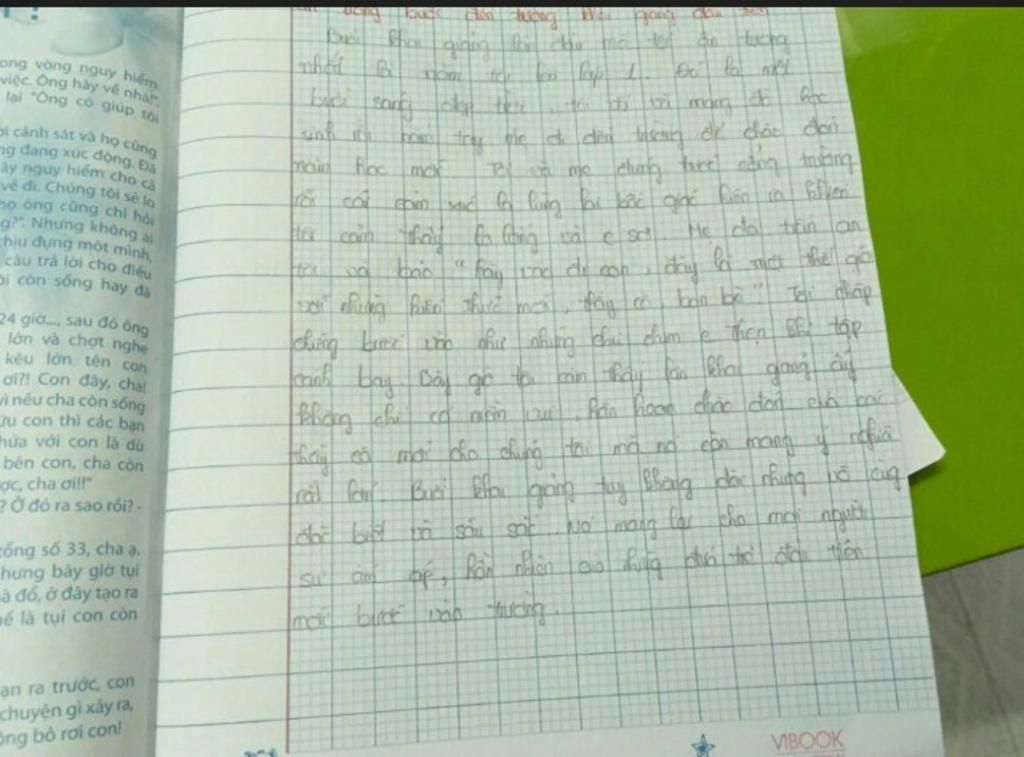 ong vòng nguy hiểm,
việc. Ông hãy về nhà!".
lại "Ông có giúp tôi
ời cảnh sát và họ cũng
ng đang xúc động. Đã
ây nguy hiểm cho cả
về đi. Chúng tôi sẽ lo
họ ông cũng chỉ hỏi
g?". Nhưng không ai
chịu đựng một mình,
câu trả lời cho điều
ôi còn sống hay đã
24 giờ..., sau đó ông
lớn và chợt nghe
kêu lớn tên con
ơi?! Con đây, cha!
vì nếu cha còn sống
ứu con thì các bạn
hứa với con là dù
bên con, cha còn
ợc, cha ơi!!"
? Ở đó ra sao rồi? -
tổng số 33, cha ạ.
hưng bây giờ tụi
à đổ, ở đây tạo ra
hế là tụi con còn
ạn ra trước, con
chuyện gì xảy ra,
ông bỏ rơi con!
bước đến trường
Buổi khai giảng lần đầu mà tôi ấn tượng
nhất là năm tôi lên lớp 1. Đó là một
buổi sáng đẹp tôi mang đi học
sinh nắm tay mẹ đi đến trường để chào đón
năm học mới Tôi và mẹ đứng trước cổng trường
rồi cái cảm xúc lo lắng lại bất giác hiện ra khiến
tôi cảm thấy lo lắng và e sợ! Mẹ
tôi và bảo "hãy đi con, đây là một thế giới
với những kiến thức mới, thầy cô, bạn bè" Tôi chập
chững bước vào như những chú chim e thẹn khi tập
cánh bay. Bây giờ tôi cảm thấy lần khai giảng ấy
không chỉ có niềm vui, hân hoan chào đón của các
thầy cô mới cho chúng tôi mà nó còn mang ý nghĩa
rất lớn! Buổi khai giảng tuy không dài nhưng vô cùng
đặc biệt và sâu sắc. Nó mang lại cho mọi người
sự ấm áp, hồn nhiên của những đứa trẻ
mới bước vào trường.
VIBOOK